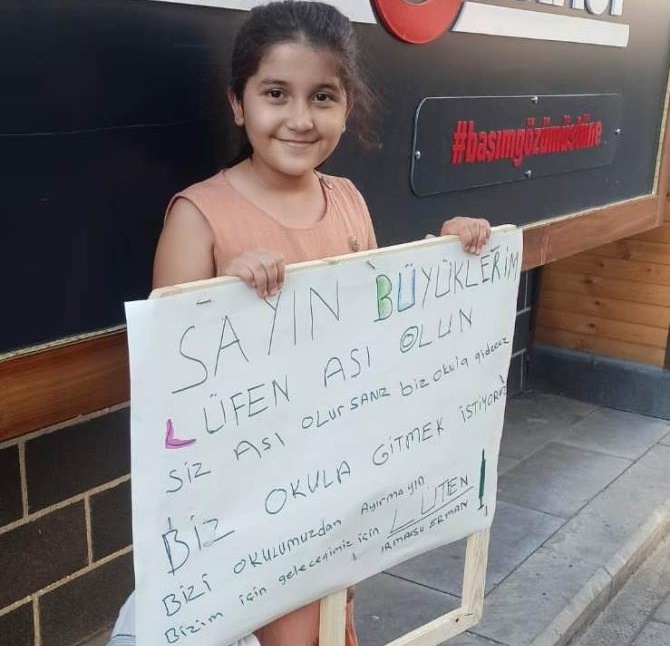 #başımgözümüstüne
SAYIN BÜYÜKLERİM
LÜFEN AŞI OLUN
SİZ AŞI OLURSANIZ biz okula gidecez
BİZ OKULA GİTMEK İSTİYORUZ
BİZİ OKULUMUZDAN Ayırmayın
Bizim için geleceğimiz için LÜTEN !
IRMAKSU ERMAN